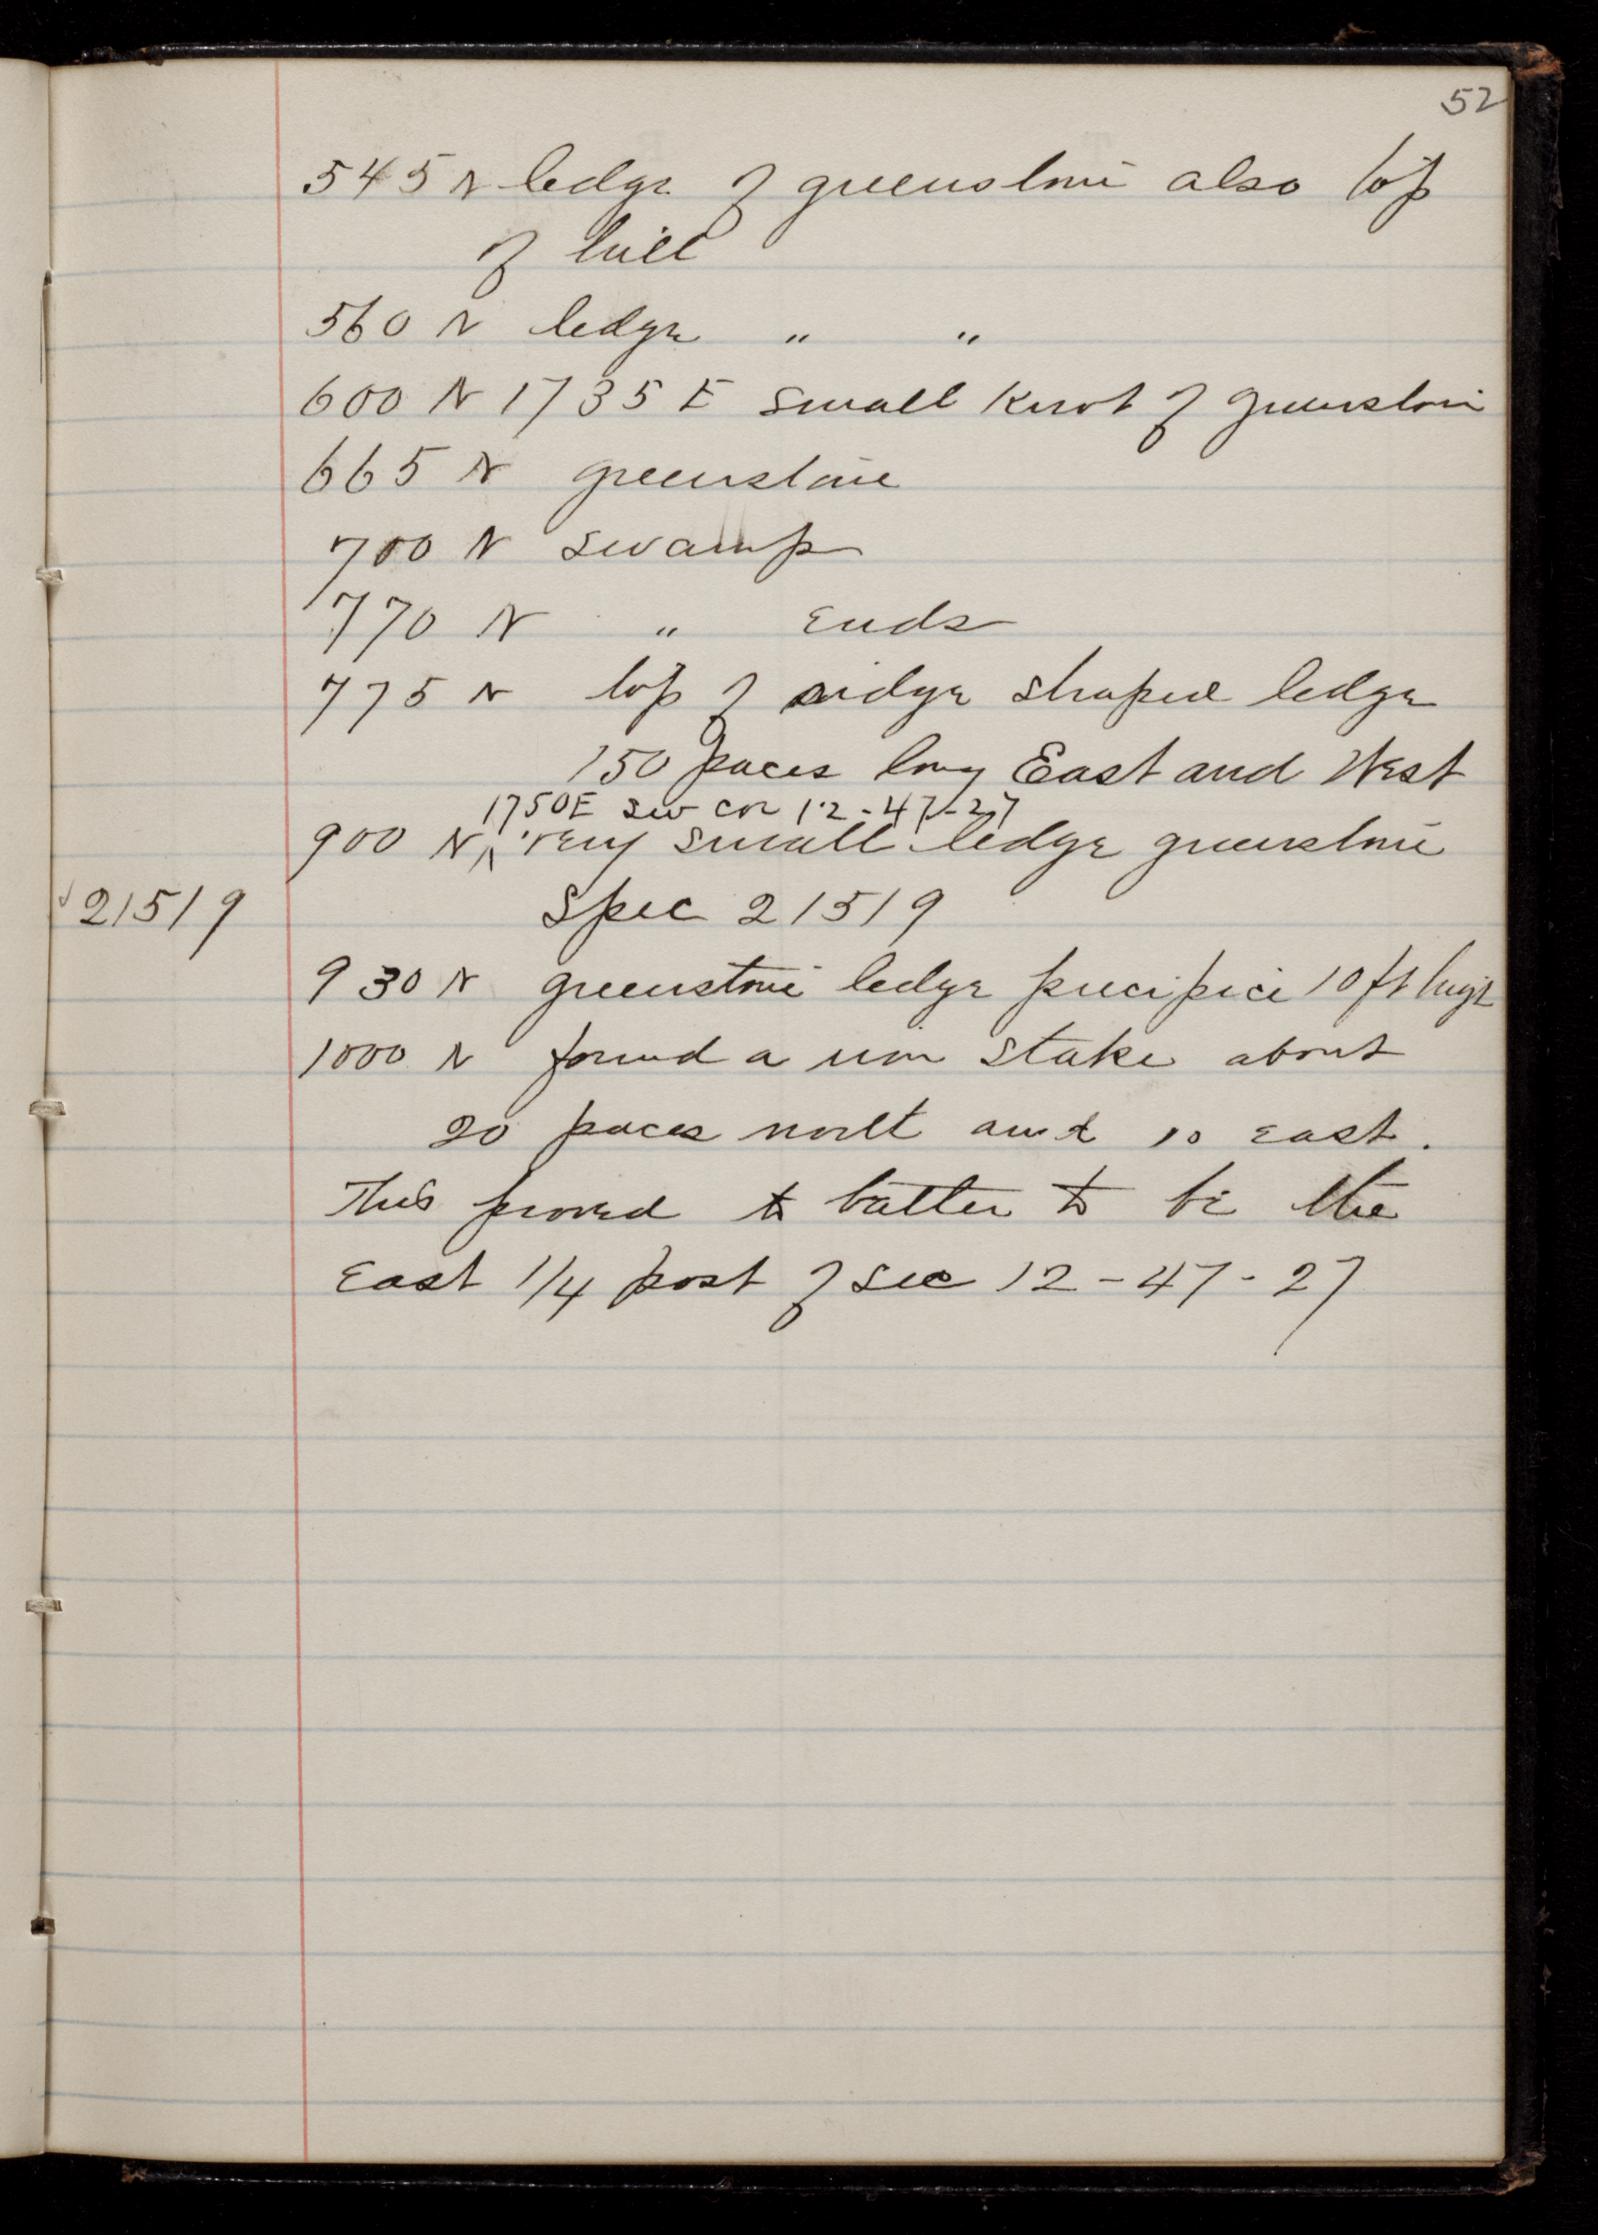 52
545 N ledge of greenstone also top
of hill
560 N ledge " "
600 N 1735 E small knot of greenstone
665 N greenstone
700 N swamp
770 N " ends
775 N top of ridge shaped ledge
150 paces long East and West
1750E SW cor 12-47-27
900 N ^ very small ledge greenstone
21519 Spec 21519
930 N greenstone ledge precipice 10 ft high
1000 N found a stake about
20 paces north and 10 east.
This proved to to be the
East 1/4 post of sec 12-47-27